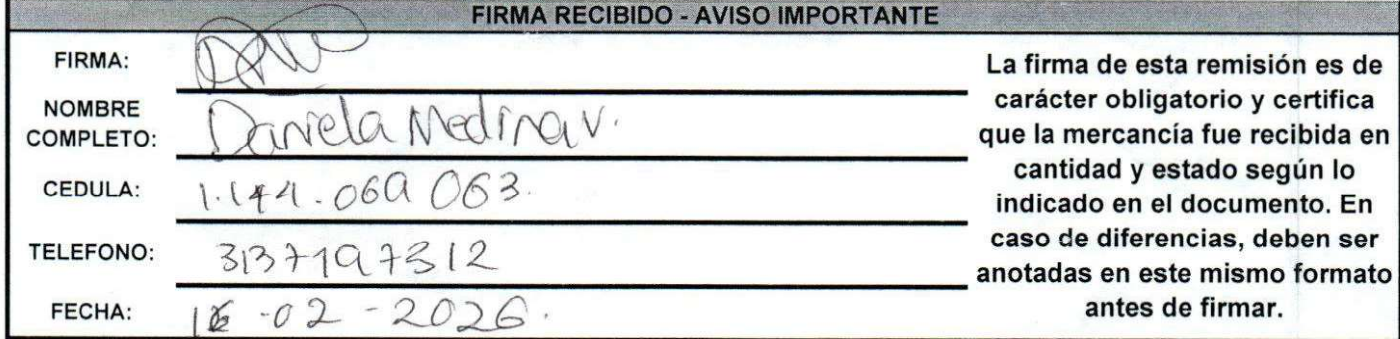 FIRMA RECIBIDO - AVISO IMPORTANTE
FIRMA:
NOMBRE
COMPLETO:
Daniela Medina V.
CEDULA:
1.144.069 063.
TELEFONO:
3137197312
FECHA:
16 -02 -2026.
La firma de esta remisión es de
carácter obligatorio y certifica
que la mercancía fue recibida en
cantidad y estado según lo
indicado en el documento. En
caso de diferencias, deben ser
anotadas en este mismo formato
antes de firmar.